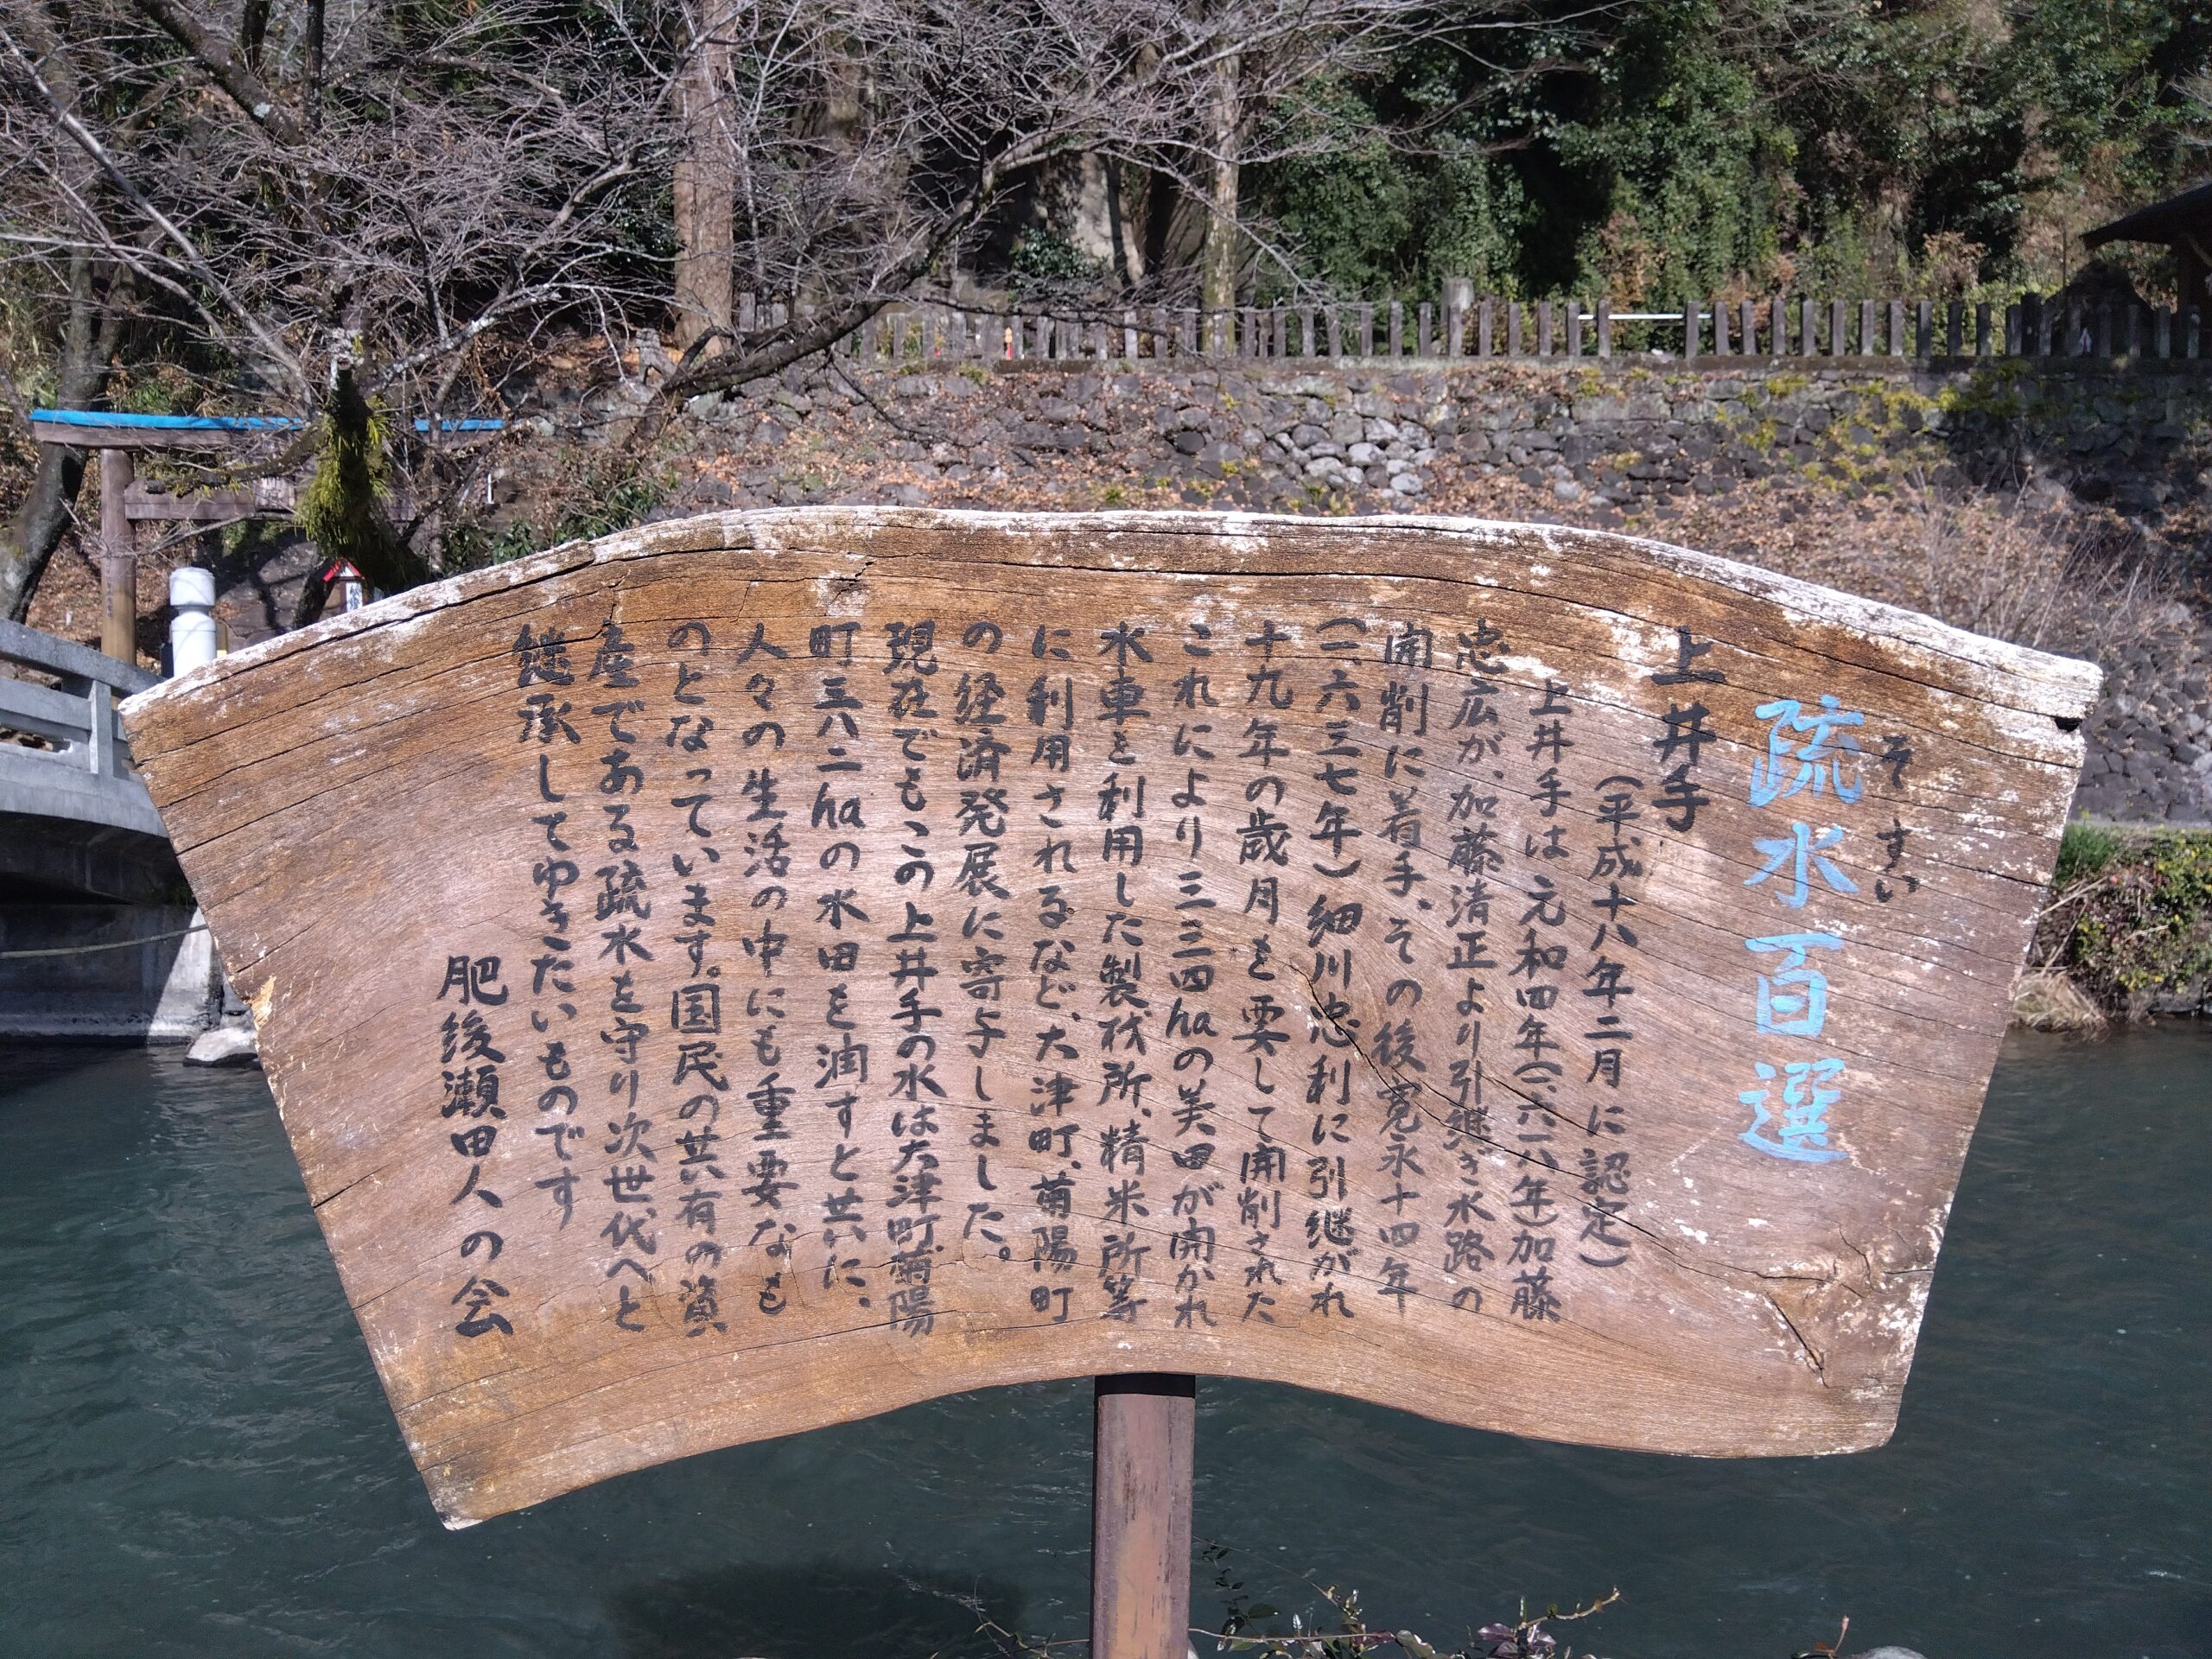 そすい
疏水百選
上井手
（平成十八年二月に認定）
上井手は元和四年（一六一八年）加藤
忠広が、加藤清正より引継ぎ水路の
開削に着手、その後寛永十四年
（一六三七年）細川忠利に引継がれ
十九年の歳月を要して開削された
これにより三三四haの美田が開かれ
水車を利用した製材所、精米所等
に利用されるなど、大津町、菊陽町
の経済発展に寄与しました。
現在でもこの上井手の水は大津町、菊陽
町三八二haの水田を潤すと共に、
人々の生活の中にも重要なも
のとなっています。国民の共有の資
産である疏水を守り次世代へと
継承してゆきたいものです
肥後瀬田人の会